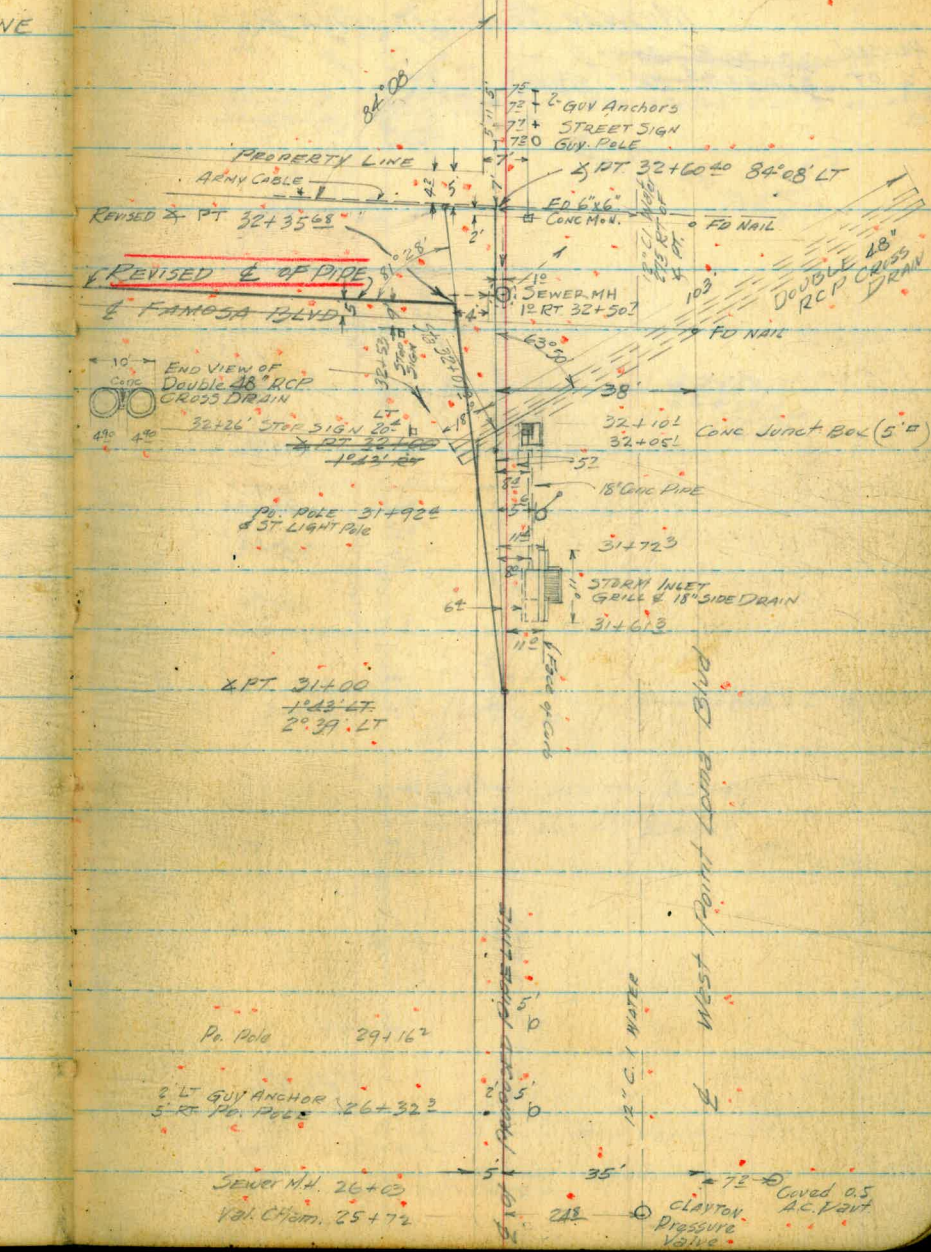 NE
84°08'
5'
11'
5'
7²
7²
7⁷
7²
2- GUY Anchors
STREET SIGN
GUY POLE
7'
PROPERTY LINE
ARMY CABLE
4²
5'
7'
∡ PT. 32+60⁴⁰ 84°08' LT
FD 6"x6"
CONC MON.
FD NAIL
REVISED ∡ PT
32+35⁶⁸
2'
81°28'
REVISED ℄ OF PIPE
℄ FAMOSA BLVD
5'
4'
1⁰
SEWER MH
1⁰ RT 32+50⁷
10³
DOUBLE 48"
RCP CROSS
DRAIN
FD NAIL
63°50'
38'
32+53
STOP
SIGN
10'
Conc
4⁹⁰ 4⁹⁰
END VIEW OF
Double 48" RCP
CROSS DRAIN
32+26' STOP SIGN 20⁴ LT
∡ PT 32+00
1°43' RT
32+10¹
32+05¹
CONC JUNCT BOX (5'□)
5²
18" Conc PIPE
Po. POLE 31+92⁴
& ST. LIGHT Pole
31+72³
STORM INLET
GRILL & 18" SIDE DRAIN
11⁰
31+61³
6⁴
11⁰
Face of Curb
∡ PT. 31+00
1°43' LT.
2°39' LT
℄ West Point Loma Blvd
12" C.I. WATER
Po. Pole 29+16²
5'
2' LT GUY ANCHOR
5' RT Po. POLE
26+32³
2'
5'
5'
35'
7²
Sewer M.H. 26+03
Val. Cham. 25+72
24⁸
CLAYTON
Pressure
Valve
Coved 0.5
A.C. Pavt